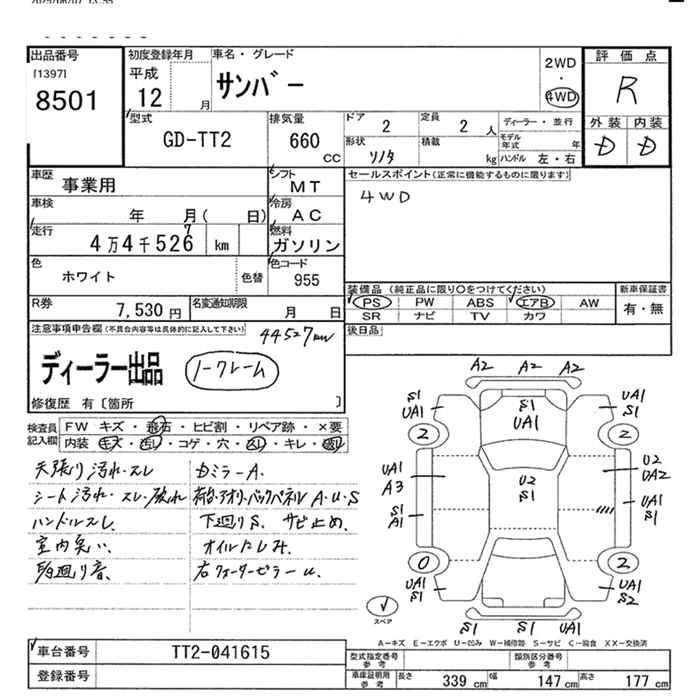 出品番号
[1397]
8501
初度登録年月
平成
12 月
車名・グレード
サンバー
2WD
・
4WD
評価点
R
外装 内装
D D
型式
GD-TT2
排気量
660
CC
ドア
2
定員
2 人
ディーラー・並行
モデル
年式 年
形状
積載
kg
ハンドル 左・右
車歴
事業用
シフト
MT
セールスポイント(正常に機能するものに限ります)
4WD
車検
年 月( 日)
冷房
AC
走行
4万4千526 km
7
燃料
ガソリン
色
ホワイト
色替
色コード
955
装備品(純正品に限り〇をつけてください)
PS PW ABS エアB AW
SR ナビ TV カワ
新車保証書
有・無
R券
7,530 円
名変通知期限
月 日
後日品
注意事項申告欄(不具合内容等は具体的に記入して下さい)
44527km
ディーラー出品
ノークレーム
修復歴 有〔箇所 〕
検査員
記入欄
FW キズ・飛石・ヒビ割・リペア跡・×要
内装 キズ・汚レ・コゲ・穴・スレ・キレ・破レ
天張り汚れ・スレ
シート汚れ・スレ・破れ
ハンドルスレ
室内臭い、
Dミラー A.
荷台・アオリ・バックパネル A・U・S
下廻りS、サビ止め、
オイルにじみ、
A2 A2 A2
S1
UA1
S1
UA1
UA1
S1
2
2
UA1
A3
U2
S1
U2
UA2
S1
A1
UA1
S1
0
2
UA1
S1
UA1
S2
スペア
S1 S1 UA1
A-キズ E-エクボ U-凹み W-補修跡 S-サビ C-腐食 XX-交換済
車台番号
TT2-041615
登録番号
型式指定番号
参考
類別区分番号
参考
車庫証明用
参考
長さ
339 cm
幅
147 cm
高さ
177 cm